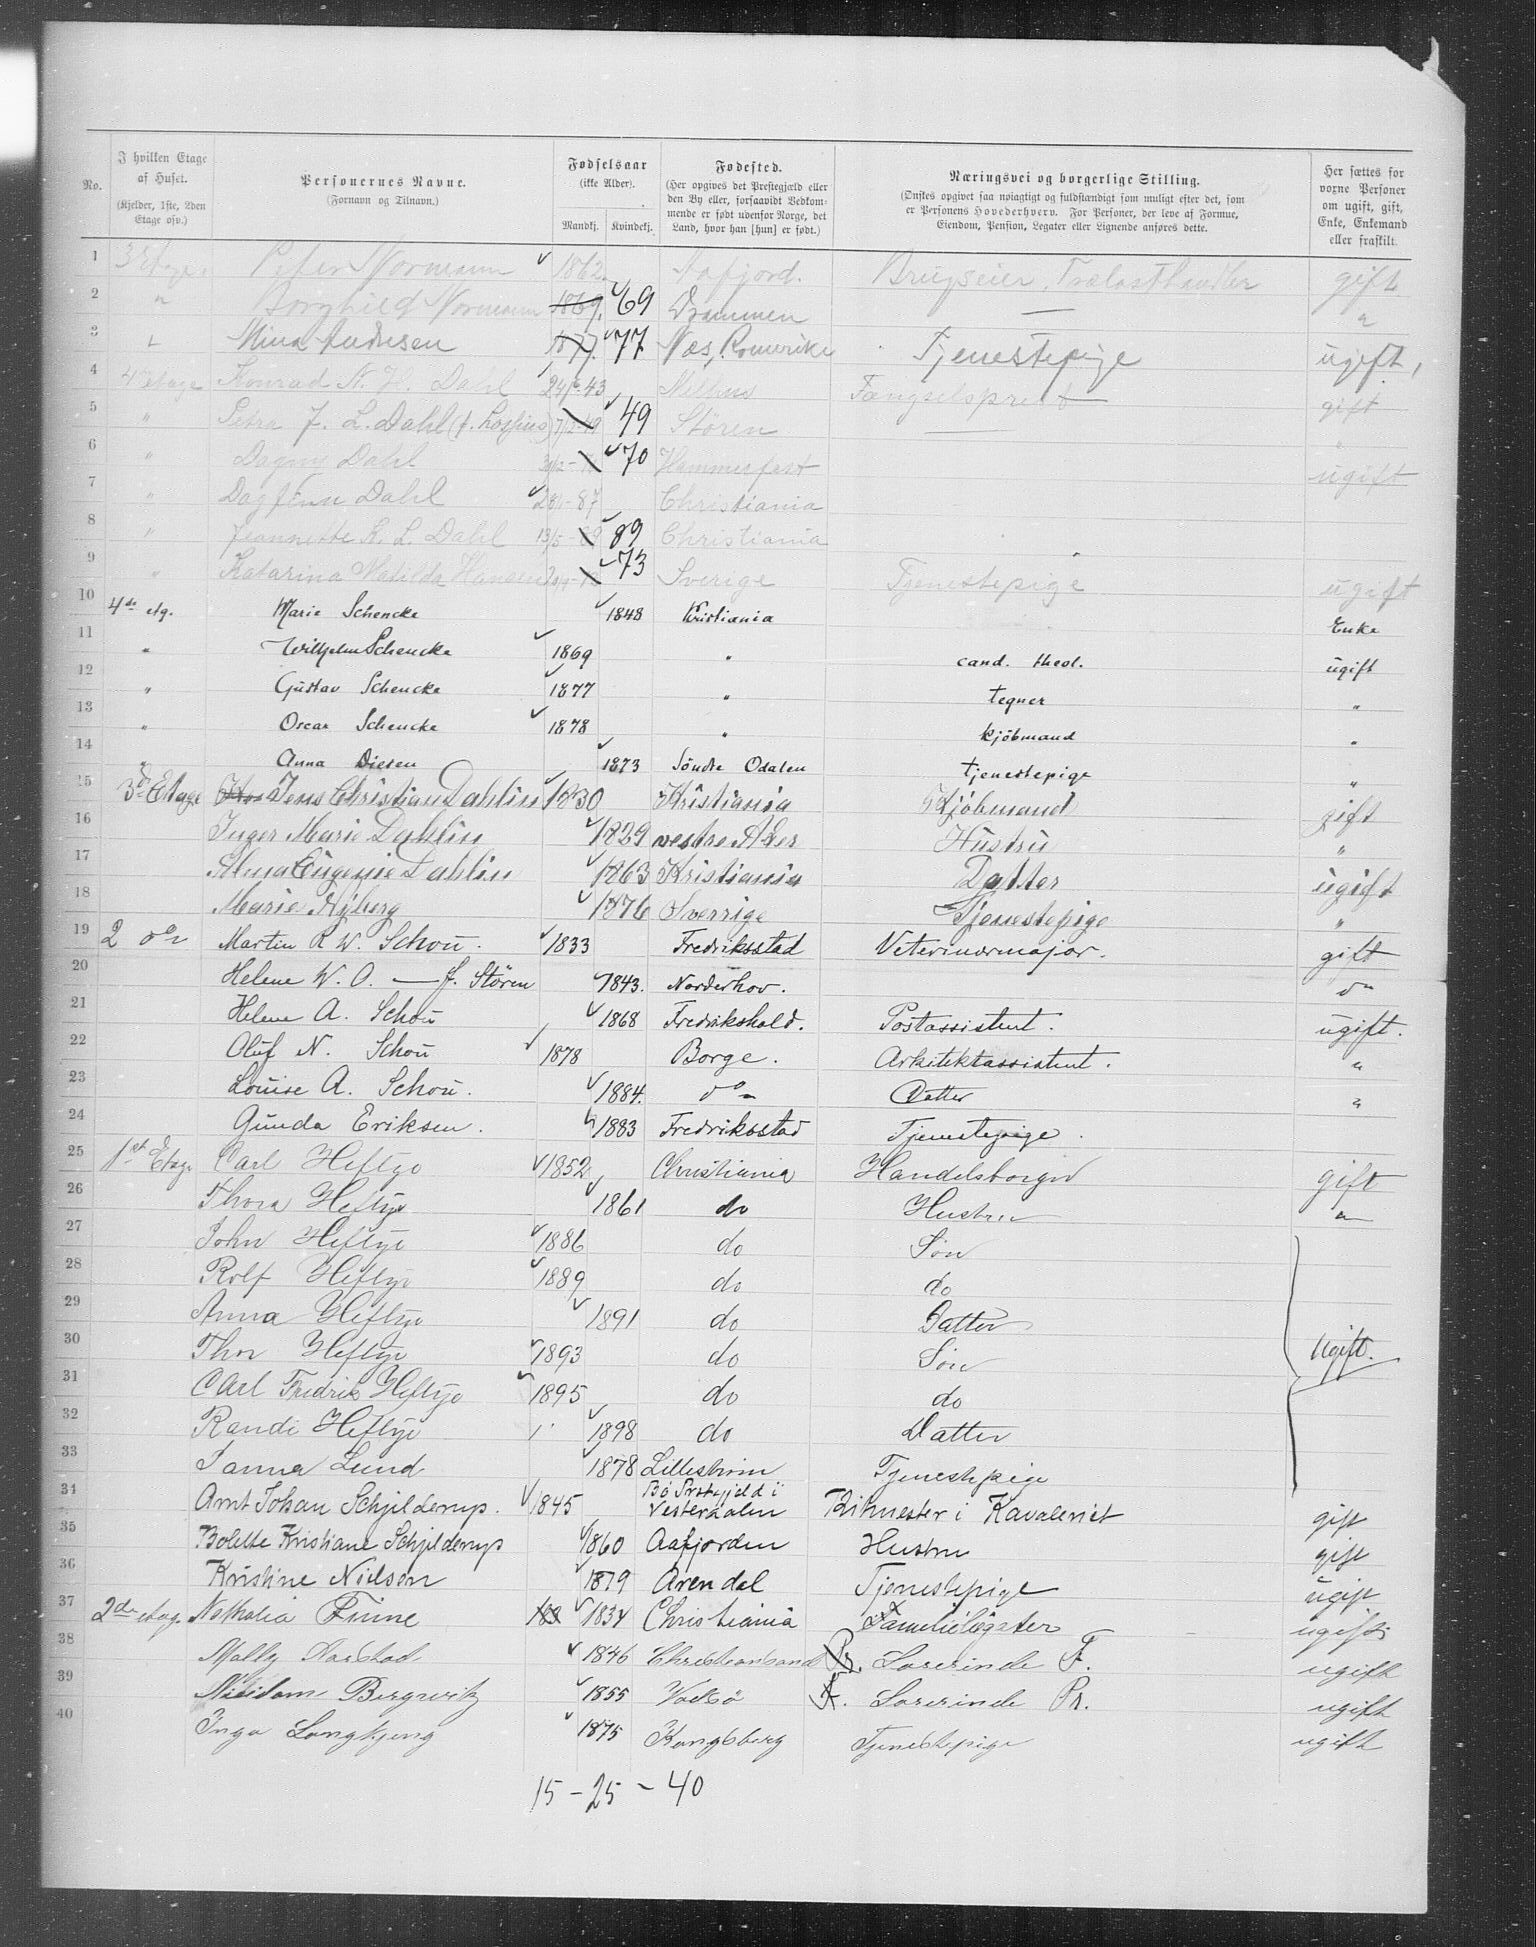 No.
I hvilken Etage af Huset. (Kjelder, 1ste, 2den Etage osv.)
Personernes Navne. (Fornavn og Tilnavn.)
Fødselsaar (ikke Alder). Mandkj. Kvindekj.
Fødested. (Her opgives det Prestegjæld eller den By eller, forsaavidt Vedkommende er født udenfor Norge, det Land, hvor han [hun] er født.)
Næringsvei og borgerlige Stilling. (Ønskes opgivet saa nøiagtigt og fuldstændigt som muligt efter det, som er Personens Hovederhverv. For Personer, der leve af Formue, Eiendom, Pension, Legater eller Lignende anføres dette.
Her sættes for voxne Personer om ugift, gift, Enke, Enkemand eller fraskilt.
1 3 Etage Peter Normann 1862 Aafjord. Brugseier, Trælasthandler gift
2 " Borghild Normann 1869. 69 Drammen — "
3 " Mina Andresen 1877. 77 Næs, Romerike Tjenestepige ugift,
4 4 etage Konrad N. H. Dahl 43 Melhus Fængselsprest gift
5 " Petra J. L. Dahl 49 Støren "
6 " Dagny Dahl 70 Hammerfest ugift
7 " Dagfinn Dahl 87 Christiania
8 " Jeannette K. L. Dahl 13/5 89 Christiania
9 " Katarina Matilda Hansen 73 Sverige Tjenestepige ugift
10 4de etg. Marie Schencke 1848 Kristiania Enke
11 " Wilhelm Schencke 1869 " cand. theol. ugift
12 " Gustav Schencke 1877 " tegner "
13 " Oscar Schencke 1878 " kjöbmand "
14 " Anna Diesen 1873 Söndre Odalen tjenestepige "
15 3de Etage Jens Christian Dahlin 1830 Kristiania Kjöbmand gift
16 Inger Marie Dahlin 1829 vestre Aker Hustru "
17 Alma Eugenie Dahlin 1863 Kristiania Datter ugift
18 Marie Nyberg 1876 Sverrige Tjenestepige "
19 2 do Martin R W. Schou. 1833 Fredriksstad Veterinærmajor. gift
20 Helene W. O. — f. Stören 1843. Norderhov. do
21 Helene A. Schou 1868 Fredrikshald. Postassistent. ugift.
22 Oluf N. Schou 1878 Borge. Arkitektassistent. "
23 Louise A. Schou. 1884. do Datter "
24 Gunda Eriksen. 1883 Fredriksstad Tjenestepige.
25 1st Etage Carl Heftye 1852 Christiania Handelsborger gift
26 Thora Heftye 1861 do Hustru "
27 John Heftye 1886 do Søn
28 Rolf Heftye 1889 do do
29 Anna Heftye 1891 do Datter
30 Thor Heftye 1893 do Søn Ugift.
31 Carl Fredrik Heftye 1895 do do
32 Randi Heftye 1898 do Datter
33 Janna Lund 1878 Lillestrøm Tjenestepige
34 Arnt Johan Schjelderup. 1845 Bö Prstgjeld i Vesteraalen Ritmester i Kavaleriet gift
35 Bolette Kristiane Schjelderup 1860 Aafjorden Hustru gift
36 Kristine Nielsen 1879 Arendal Tjenestepige ugift
37 2de etage Nathalia Finne 183 1834 Christiania Familielegater ugift
38 Mally Aarstad 1846 Christiansand Pr. Lærerinde F. ugift
39 Bergwitz 1855 Vadsö F. Lærerinde Pr. ugift
40 Inga Langkjeng 1875 Kongsberg Tjenestepige ugift
15 - 25 - 40